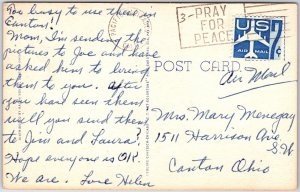 Too busy to use these in
Canton!
Mom, I'm sending the
pictures to Joe and have
asked him to bring
them to you. After
you have seen them
will you send them
to Jim and Laura?
Hope everyone is OK.
We are. Love Helen
3-PRAY
FOR
PEACE
U.S.
AIR MAIL
7¢
POST CARD
Air Mail
Mrs. Mary Menegay
1511 Harrison Ave
S.W.
Canton Ohio